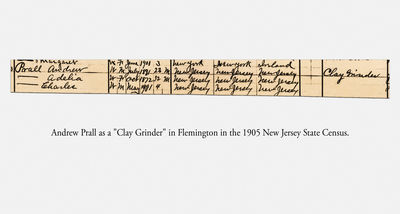 W F June 1901 3 New York New York Ireland
Prall Andrew W M July 1871 33 M New Jersey New Jersey New Jersey Clay Grinder
Adelia W F Oct 1872 32 M New Jersey New Jersey New Jersey
Charles W M May 1901 4 New Jersey New Jersey New Jersey
Andrew Prall as a "Clay Grinder" in Flemington in the 1905 New Jersey State Census.